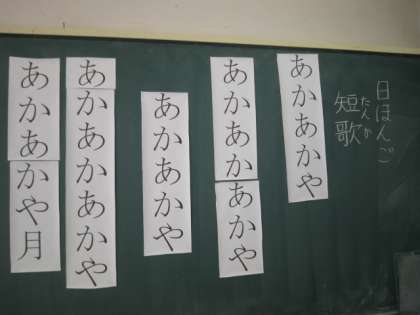 日ほんご
たんか
短歌
あかあかや
あかあかあかや
あかあかや
あかあかあかや
あかあかや月